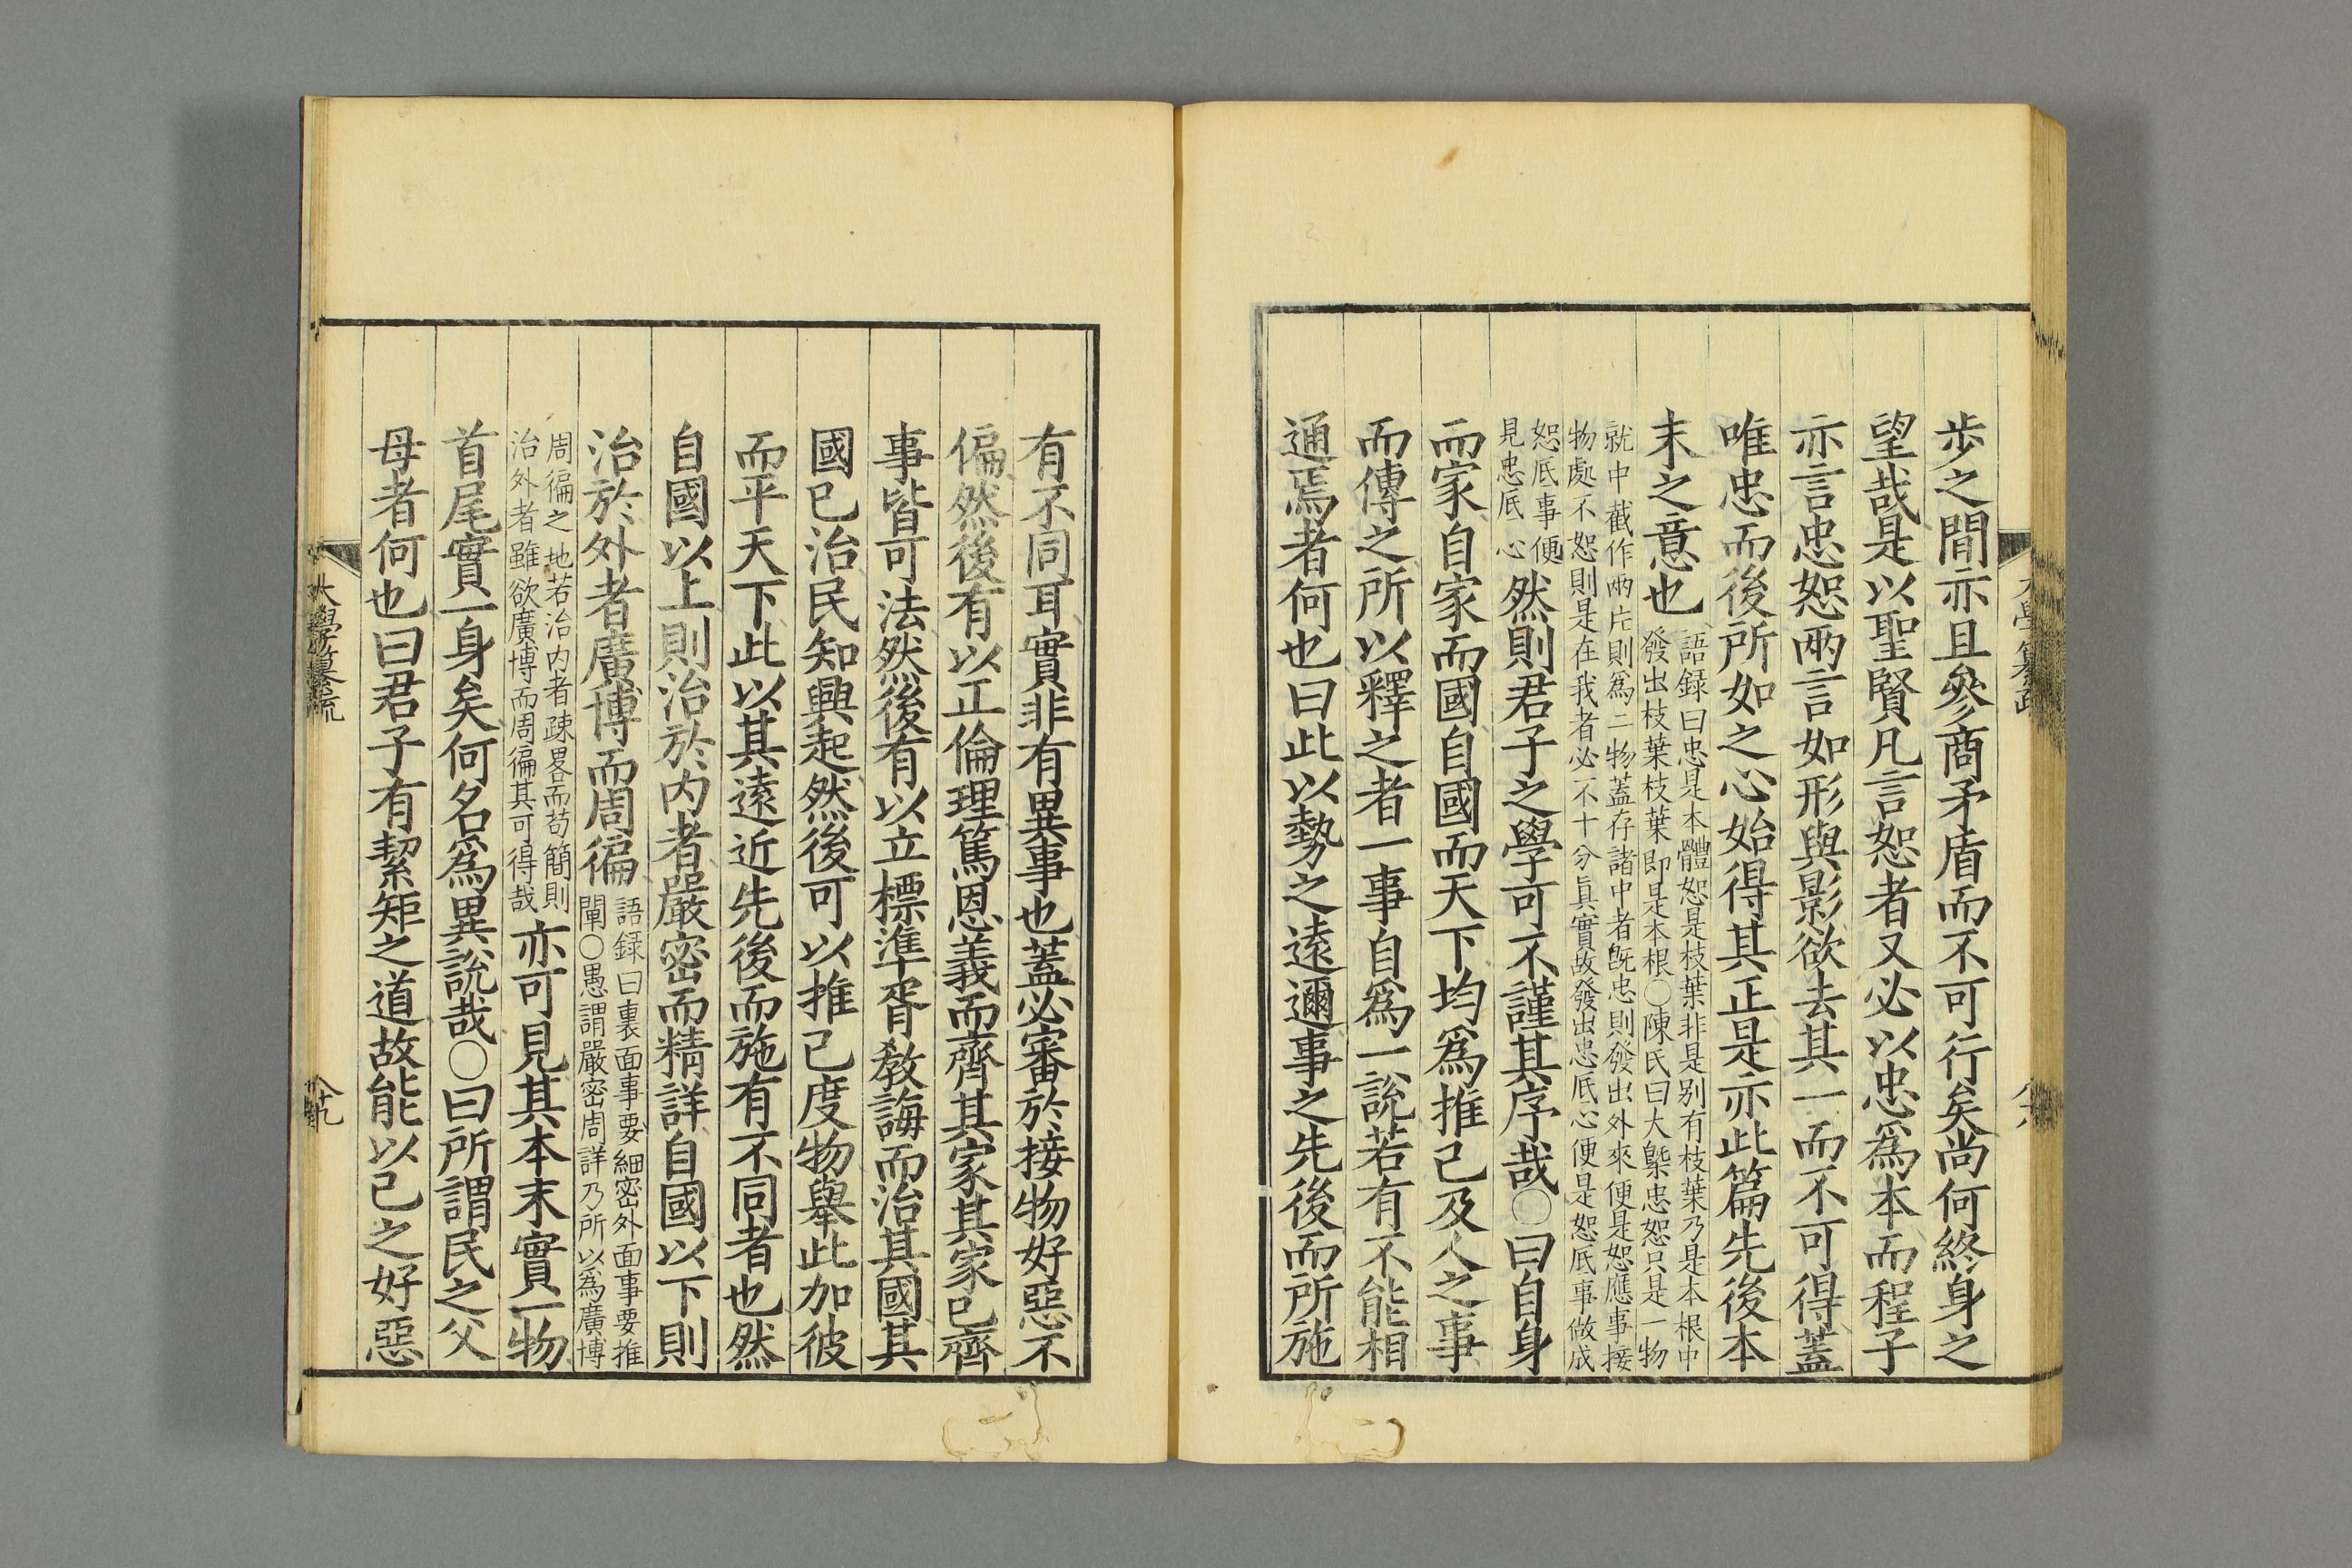 歩之間亦且參商矛盾而不可行矣尚何終身之
望哉是以聖賢凡言恕者又必以忠爲本而程子
亦言忠恕兩言如形與影欲去其一而不可得蓋
唯忠而後所如之心始得其正是亦此篇先後本
末之意也
語録曰忠是本體恕是枝葉非是别有枝葉乃是本根中
發出枝葉枝葉即是本根〇陳氏曰大槩忠恕只是一物
就中截作兩片則爲二物蓋存諸中者旣忠則發出外來便是恕應事接
物處不恕則是在我者必不十分眞實故發出忠底心便是恕底事做成
恕底事便
見忠底心
然則君子之學可不謹其序哉〇曰自身
而家自家而國自國而天下均爲推己及人之事
而傳之所以釋之者一事自爲一說若有不能相
通焉者何也曰此以勢之遠邇事之先後而所施
有不同耳實非有異事也蓋必審於接物好惡不
偏然後有以正倫理篤恩義而齊其家其家已齊
事皆可法然後有以立標準胥教誨而治其國其
國已治民知興起然後可以推己度物舉此加彼
而平天下此以其遠近先後而施有不同者也然
自國以上則治於内者嚴密而精詳自國以下則
治於外者廣博而周徧
語録曰裏面事要細密外面事要推
闡〇愚謂嚴密周詳乃所以爲廣博
周徧之地若治内者疎畧而苟簡則
治外者雖欲廣博而周徧其可得哉
亦可見其本末實一物
首尾實一身矣何名爲異說哉〇曰所謂民之父
母者何也曰君子有絜矩之道故能以己之好惡
大學纂疏